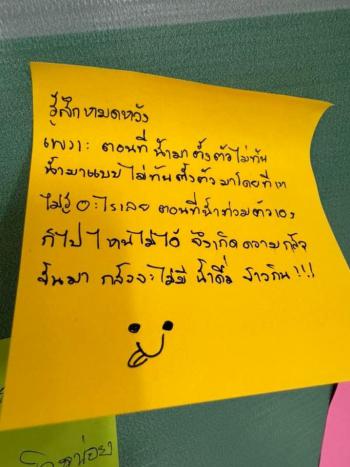 รู้สึกหมดหวัง
เพราะ ตอนที่น้ำมา ตั้งตัวไม่ทัน
น้ำมาแบบไม่ทันตั้งตัว มาโดยที่เรา
ไม่รู้อะไรเลย ตอนที่น้ำท่วมตัวเอง
ก็ไปไหนไม่ได้ จึงเกิดความกลัว
ขึ้นมา กลัวจะไม่มีน้ำดื่ม ข้าวกิน!!!